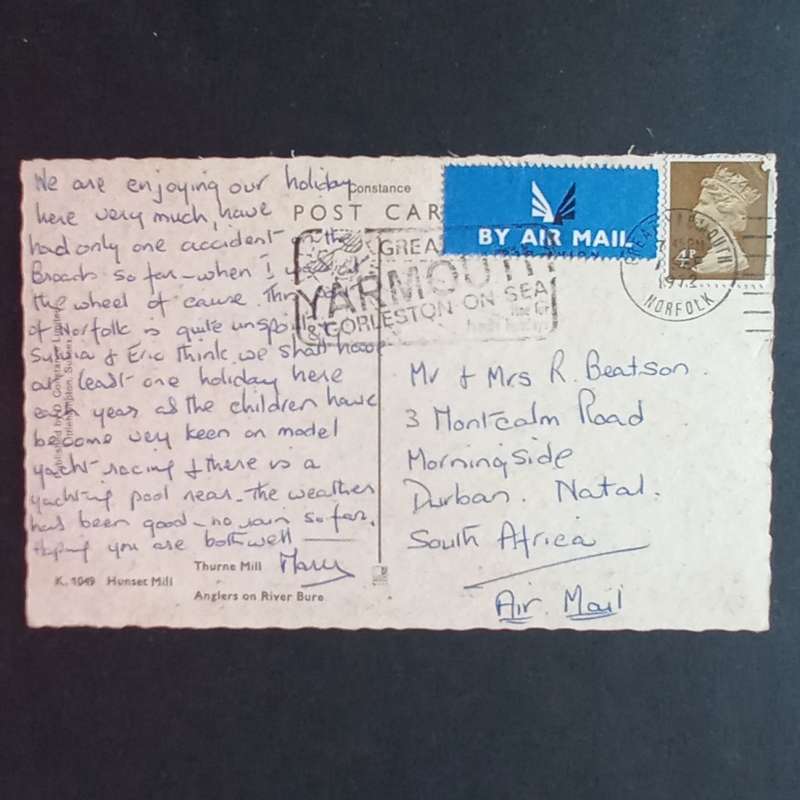 We are enjoying our holiday
here very much, have
had only one accident on the
Broads so far - when I
the wheel of cause. This
of Norfolk is quite unspoilt
Sylvia & Eric think we shall have
at least one holiday here
each year as the children have
become very keen on model
yacht-racing & there is a
yachting pool near. The weather
has been good - no rain so far.
Hoping you are both well
Mary
Constance
POST CAR
Published by Constance Limited
Littlehampton, Sussex
K. 1049 Hunset Mill
Thurne Mill
Anglers on River Bure
BY AIR MAIL
GREA
YARMOUTH
& GORLESTON-ON-SEA
GREAT YARMOUTH
NORFOLK
4P
Mr & Mrs R. Beatson.
3 Montcalm Road
Morningside
Durban. Natal.
South Africa
Air Mail